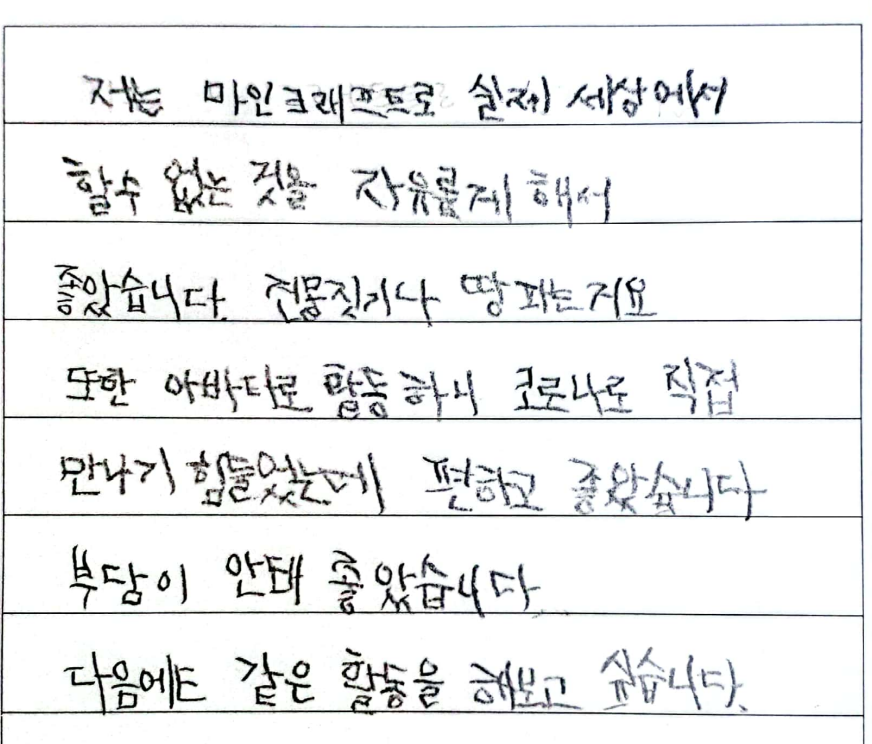 저는 마인크래프트로 실제 세상에서
할수 없는 것을 자유롭게 해서
좋았습니다. 건물짓거나 땅파는거요
또한 아바타로 활동하니 코로나로 직접
만나기 힘들었는데 편하고 좋았습니다
부담이 안돼 좋았습니다
다음에도 같은 활동을 해보고 싶습니다.